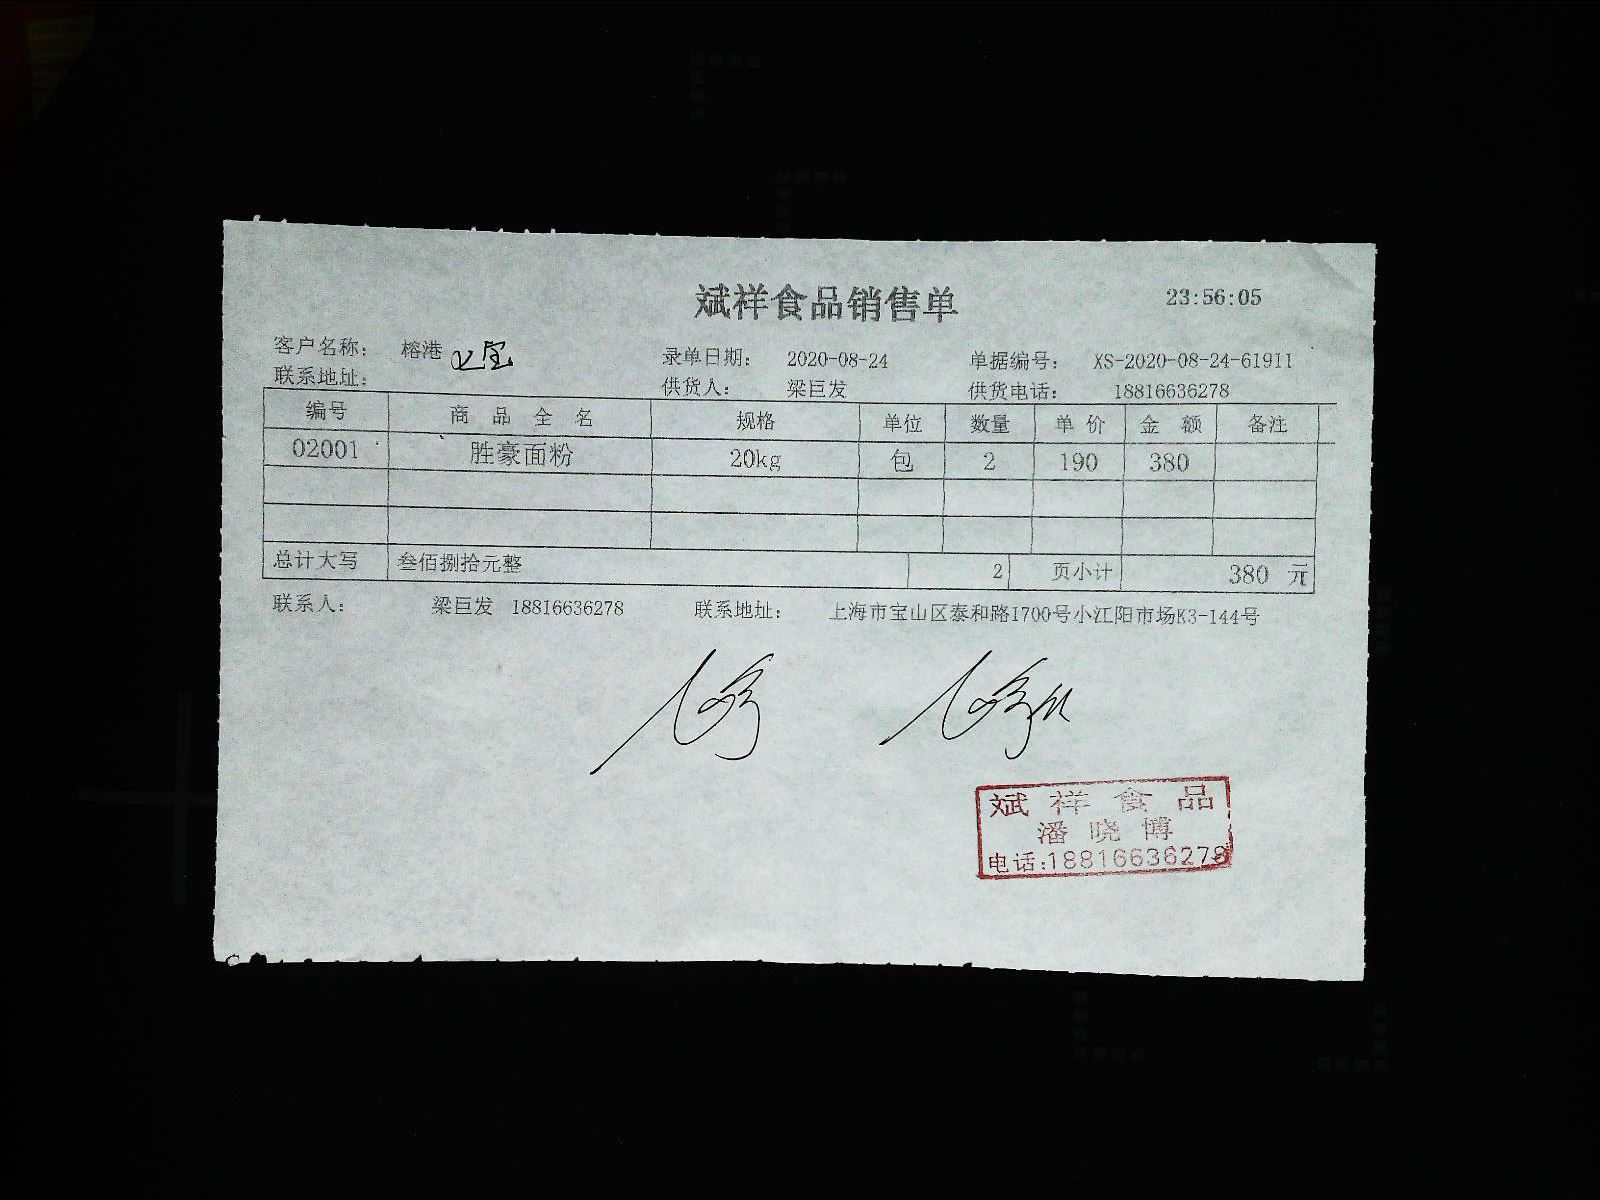 斌祥食品销售单 23:56:05
客户名称： 榕港 录单日期： 2020-08-24 单据编号： XS-2020-08-24-61911
联系地址： 供货人： 梁巨发 供货电话： 18816636278
编号 商 品 全 名 规格 单位 数量 单 价 金 额 备注
02001 胜豪面粉 20kg 包 2 190 380
总计大写 叁佰捌拾元整 2 页小计 380 元
联系人： 梁巨发 18816636278 联系地址： 上海市宝山区泰和路1700号小江阳市场K3-144号
斌 祥 食 品
潘 晓 博
电话:18816636278